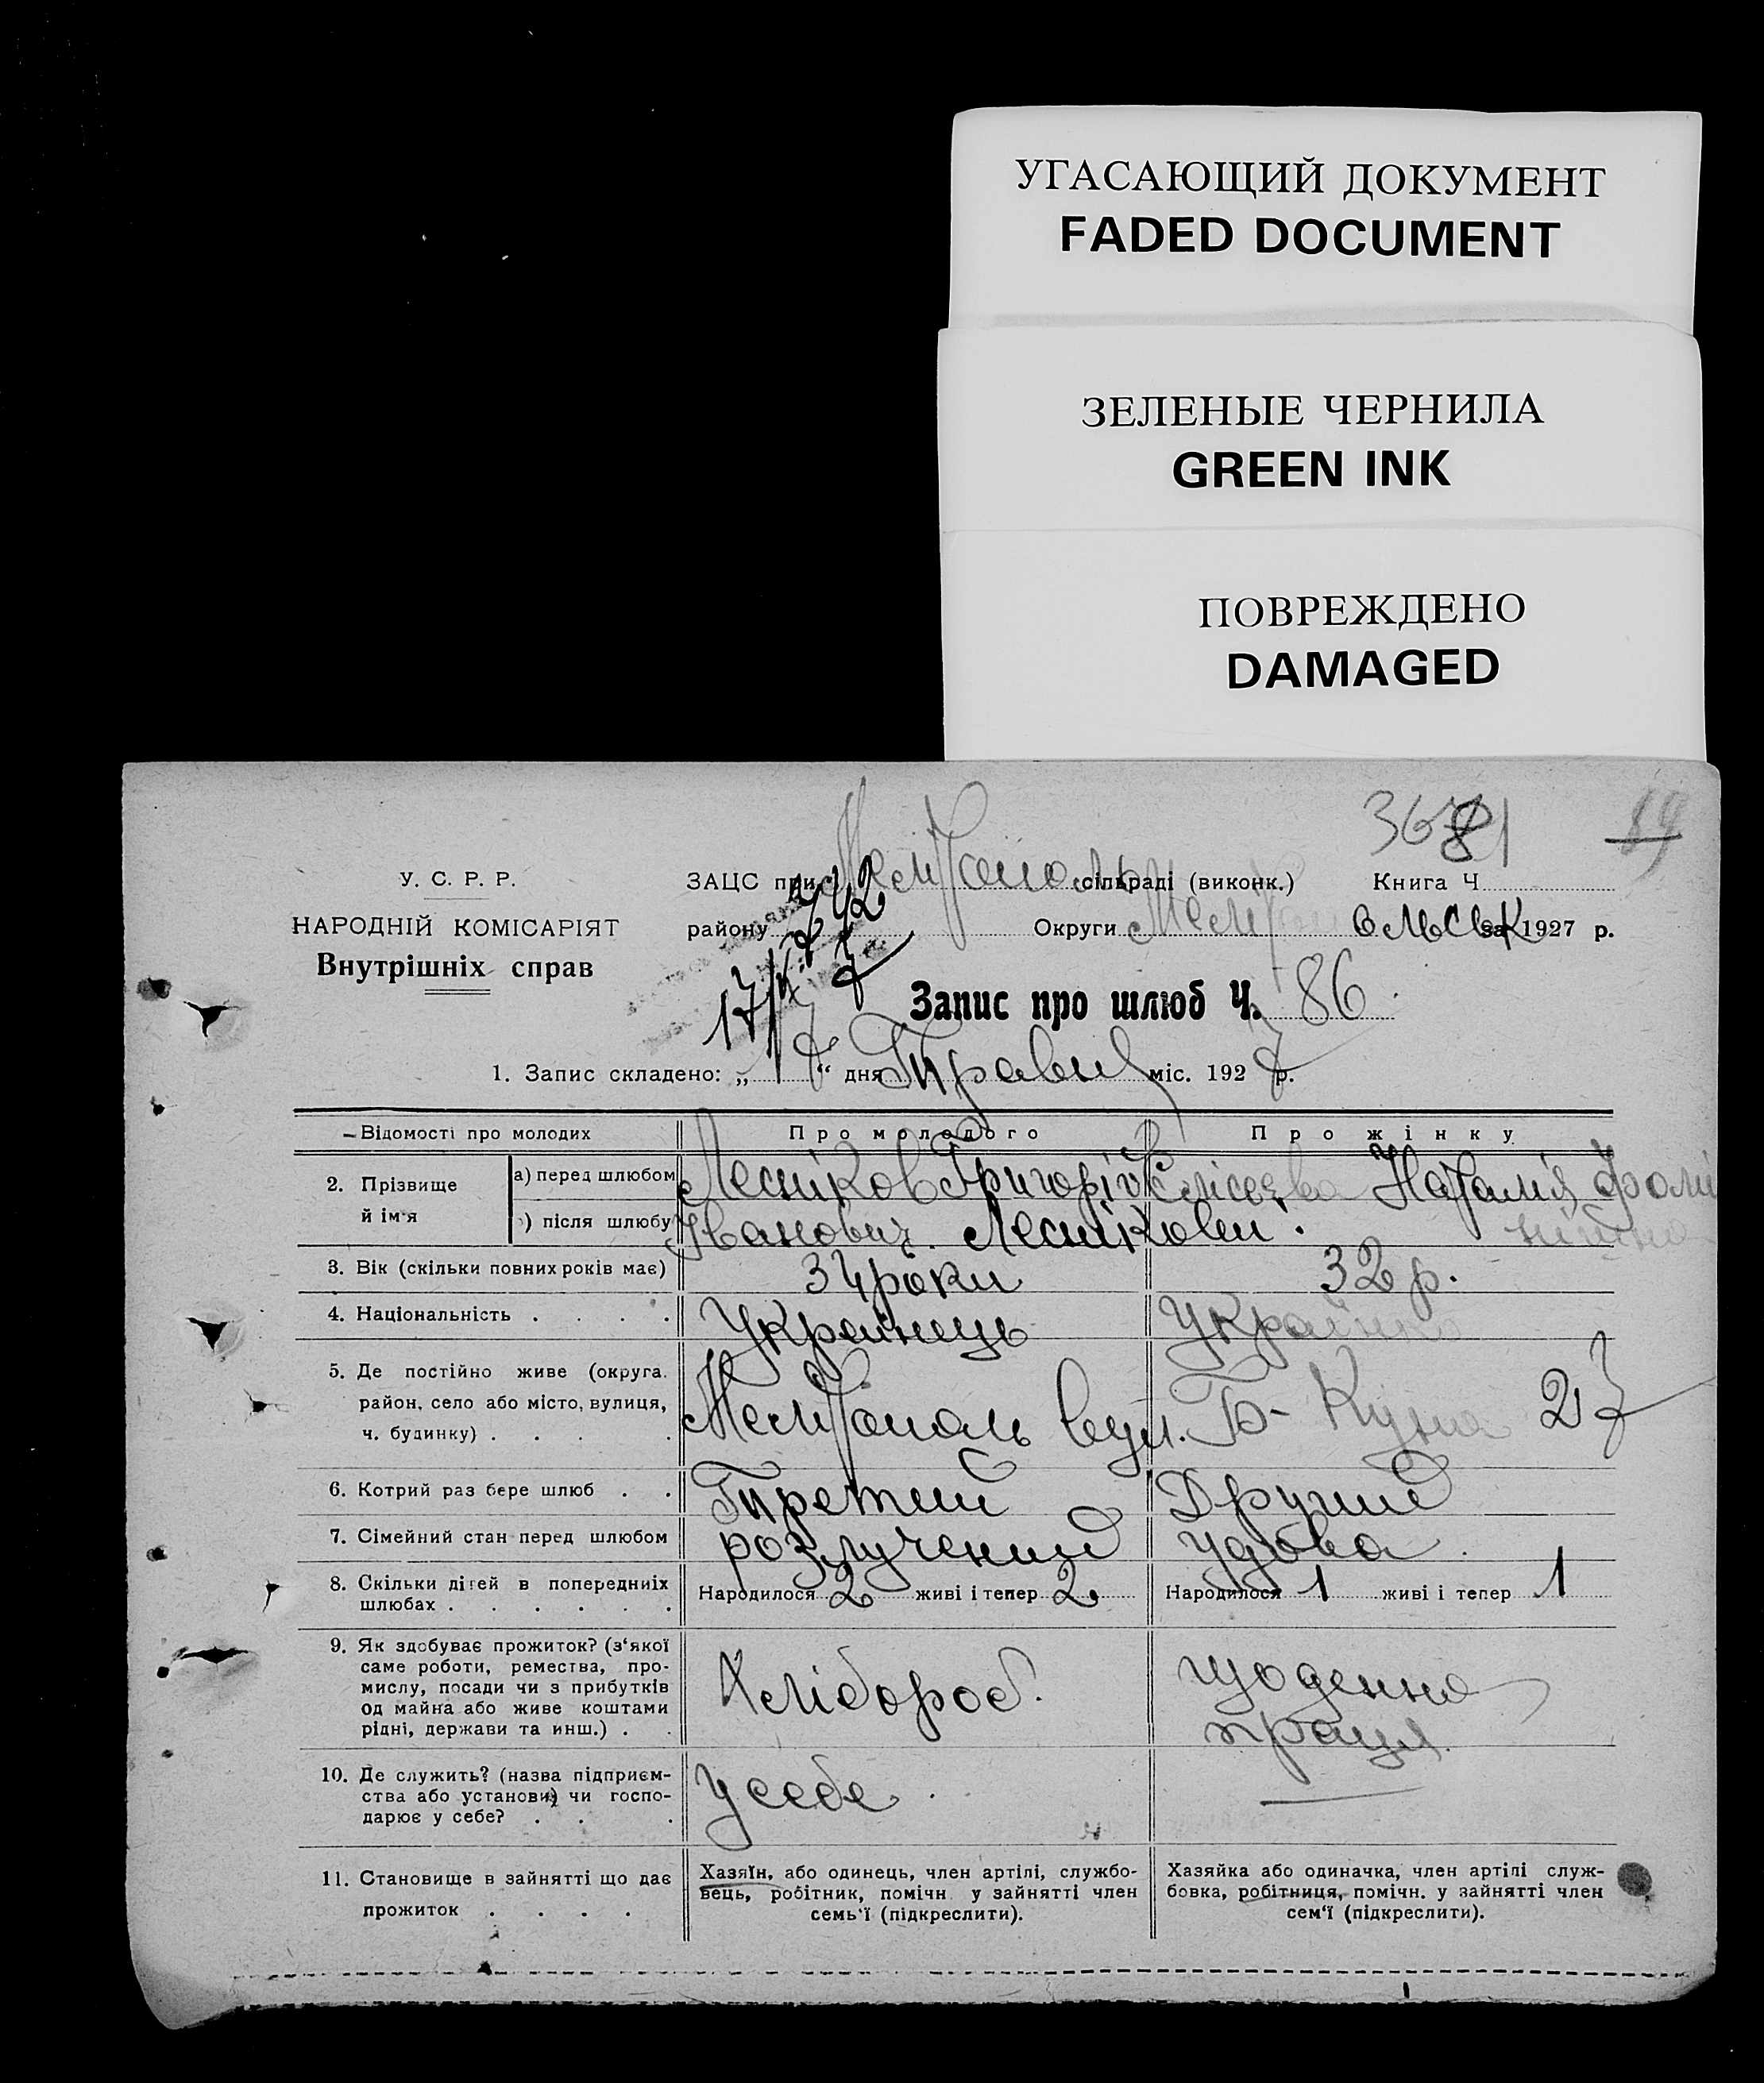 УГАСАЮЩИЙ ДОКУМЕНТ
FADED DOCUMENT
ЗЕЛЕНЫЕ ЧЕРНИЛА
GREEN INK
ПОВРЕЖДЕНО
DAMAGED
У. С. Р. Р.
НАРОДНІЙ КОМІСАРІЯТ
Внутрішніх справ
ЗАЦС при сільраді (виконк.) Книга Ч.
району Округи за 1927 р.
Запис про шлюб Ч. 86
1. Запис складено: „ “ дня Травня міс. 1927 р.
Відомості про молодих Про молодого Про жінку
2. Прізвище й ім'я
а) перед шлюбом Лесніков Григорій Наталія
Іванович
) після шлюбу Леснікови.
3. Вік (скільки повних років має) 34 роки 32 р.
4. Національність . . . . Українець Українка
5. Де постійно живе (округа, район, село або місто, вулиця, ч. будинку) . . . . Мелітополь вул. Куна 27
6. Котрий раз бере шлюб . . Третий Другий
7. Сімейний стан перед шлюбом розлучений удова.
8. Скільки дітей в попередниіх шлюбах . . . . . . Народилося 2 живі і тепер 2. Народилося 1 живі і тепер 1
9. Як здобуває прожиток? (з‘якої саме роботи, ремества, промислу, посади чи з прибутків од майна або живе коштами рідні, держави та инш.) . . Хлібороб. щоденно праця.
10. Де служить? (назва підприємства або установи) чи господарює у себе? . . . У себе.
11. Становище в зайнятті що дає прожиток . . . .
Хазяїн, або одинець, член артілі, службовець, робітник, помічн. у зайнятті член семь‘ї (підкреслити).
Хазяйка або одиначка, член артілі службовка, робітниця, помічн. у зайнятті член сем‘ї (підкреслити).